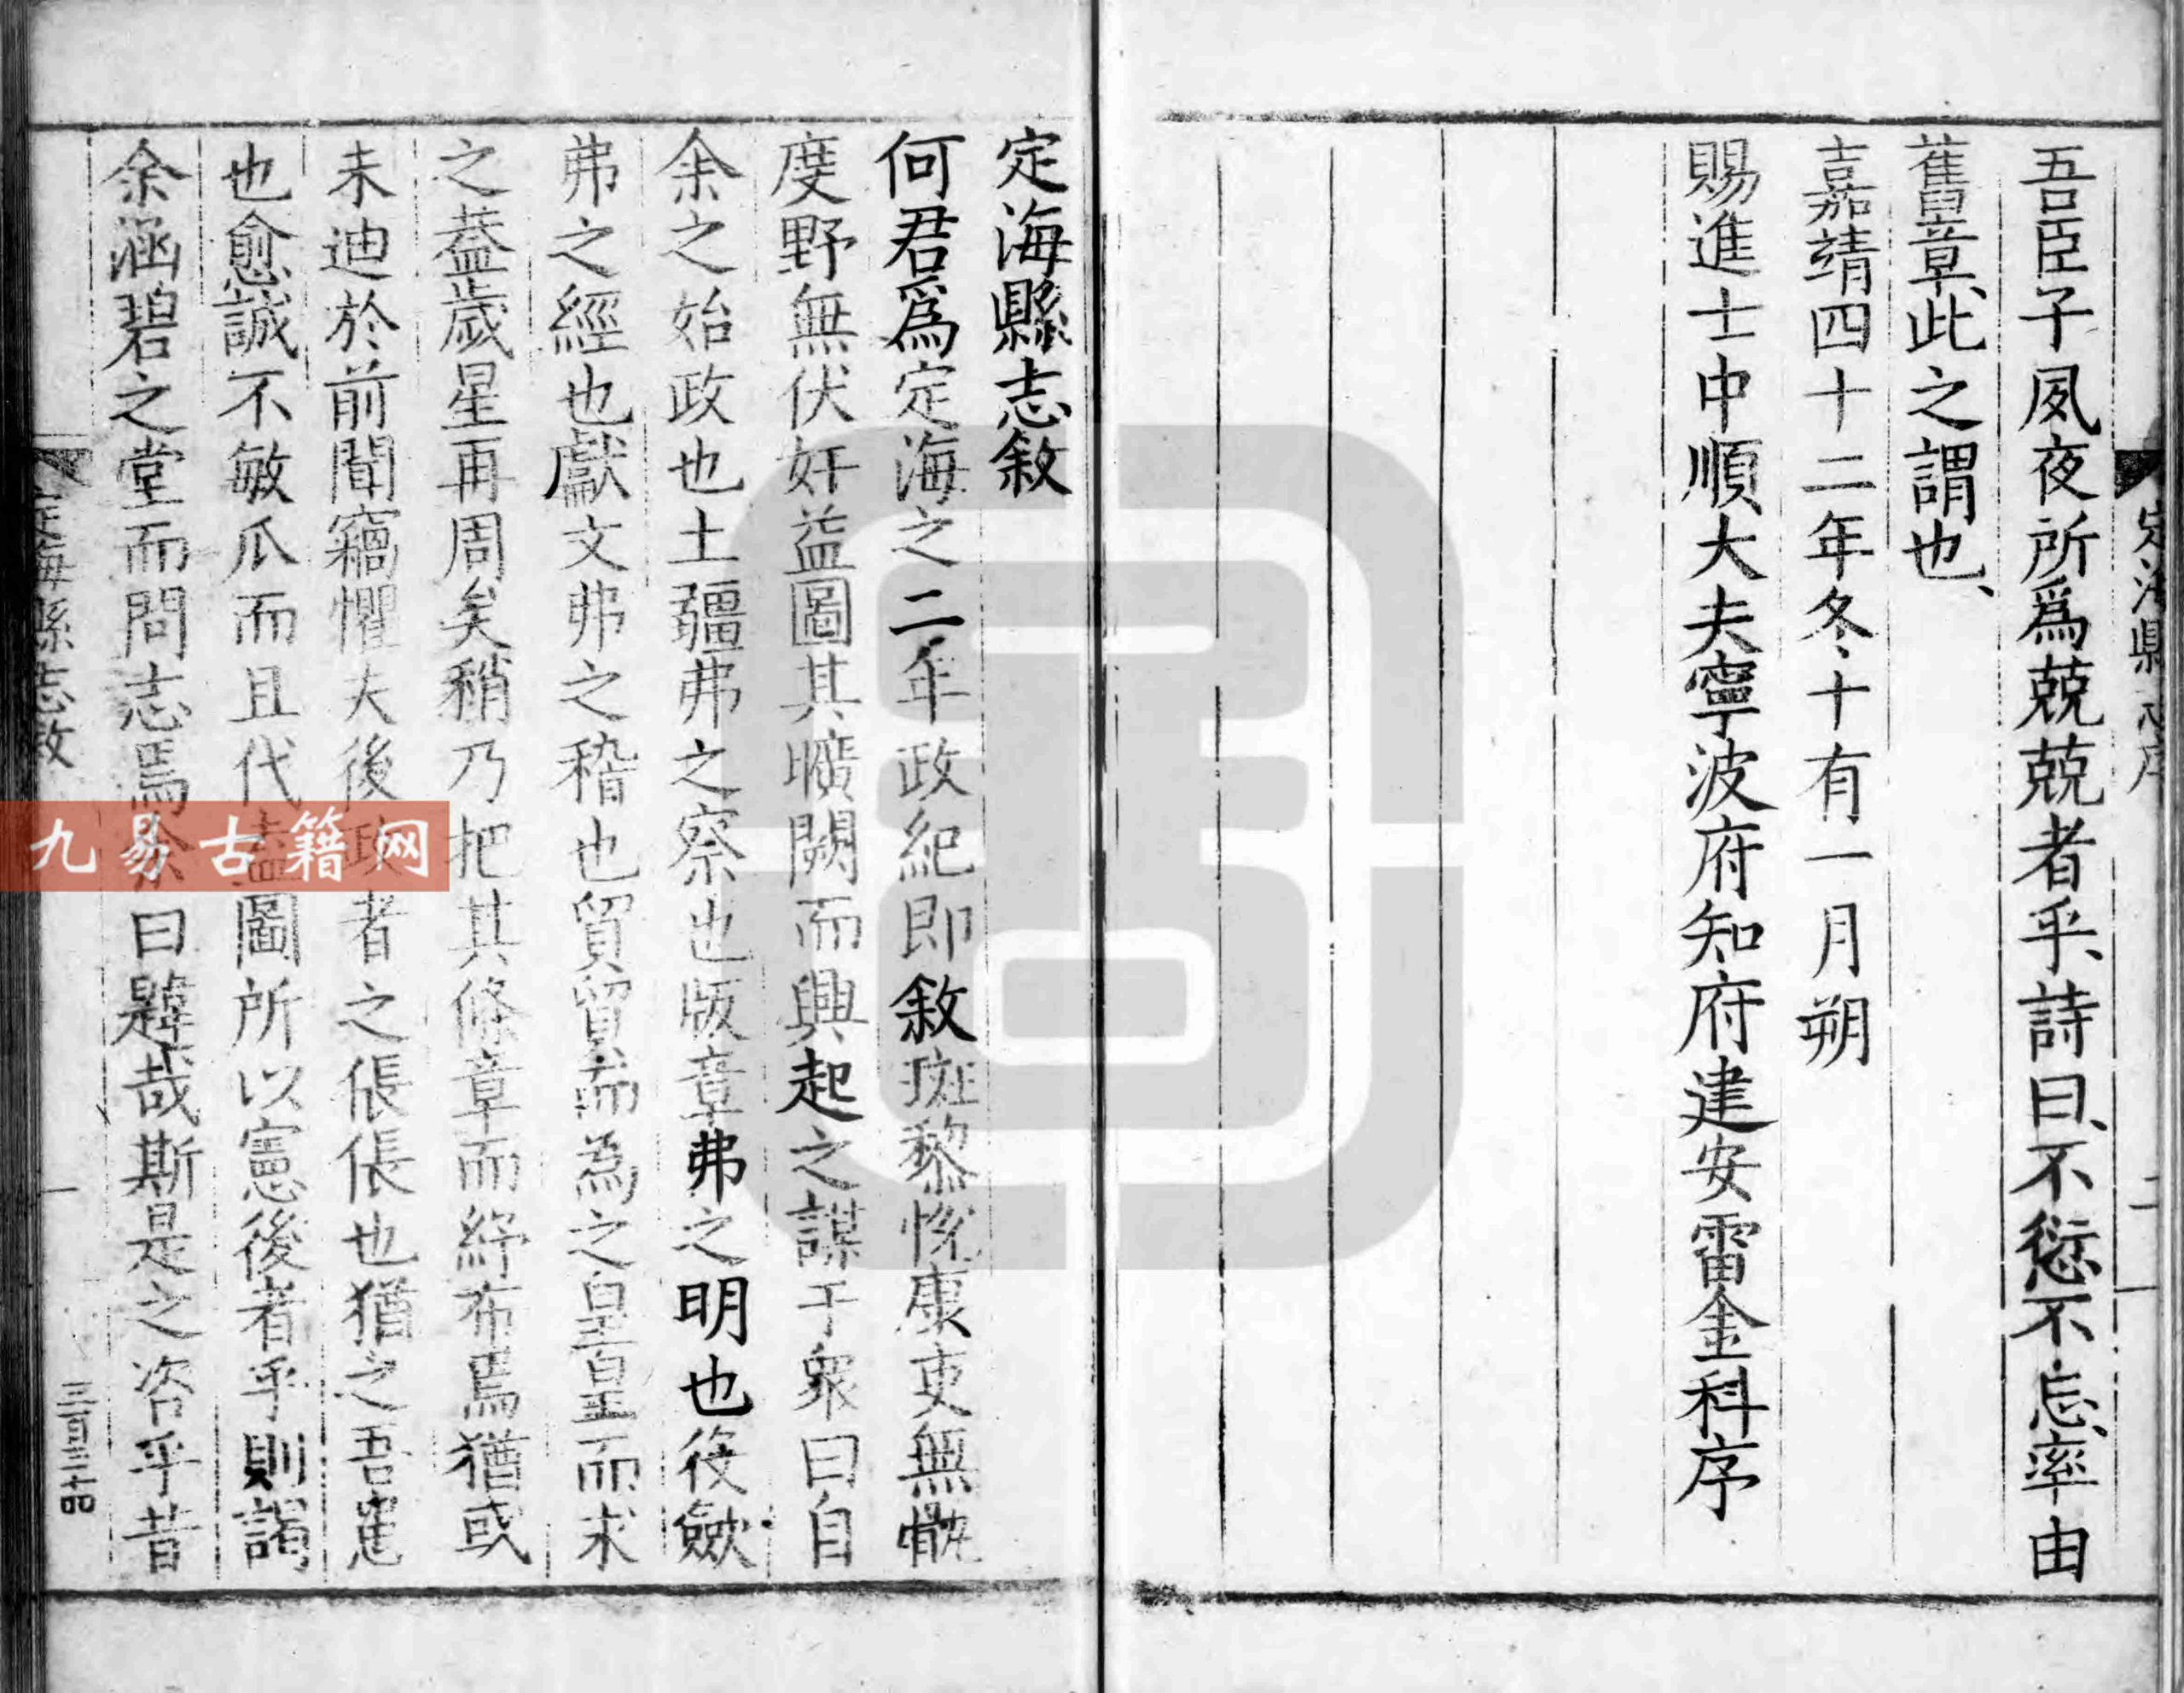 吾臣子夙夜所爲兢兢者乎、詩曰、不愆不忘、率由
舊章、此之謂也、
嘉靖四十二年冬十有一月朔
賜進士中順大夫寧波府知府建安雷金科序
定海縣志敘
何君爲定海之二年政紀即敘斑黎恱康吏無骫
度野無伏奸益圖其曠闕而興起之謀于衆曰自
余之始政也土疆弗之察也版章弗之明也役斂
弗之經也獻文弗之稽也貿貿而為之皇皇而求
之葢歲星再周矣稍乃把其條章而紓布焉猶或
未迪於前聞竊懼夫後政者之倀倀也猶之吾嵬
也愈誠不敏瓜而且代盍圖所以憲後者乎則謁
余涵碧之堂而問志焉余曰韙哉斯是之咨乎昔
定海縣志敘
一
三百三十四
九易古籍网